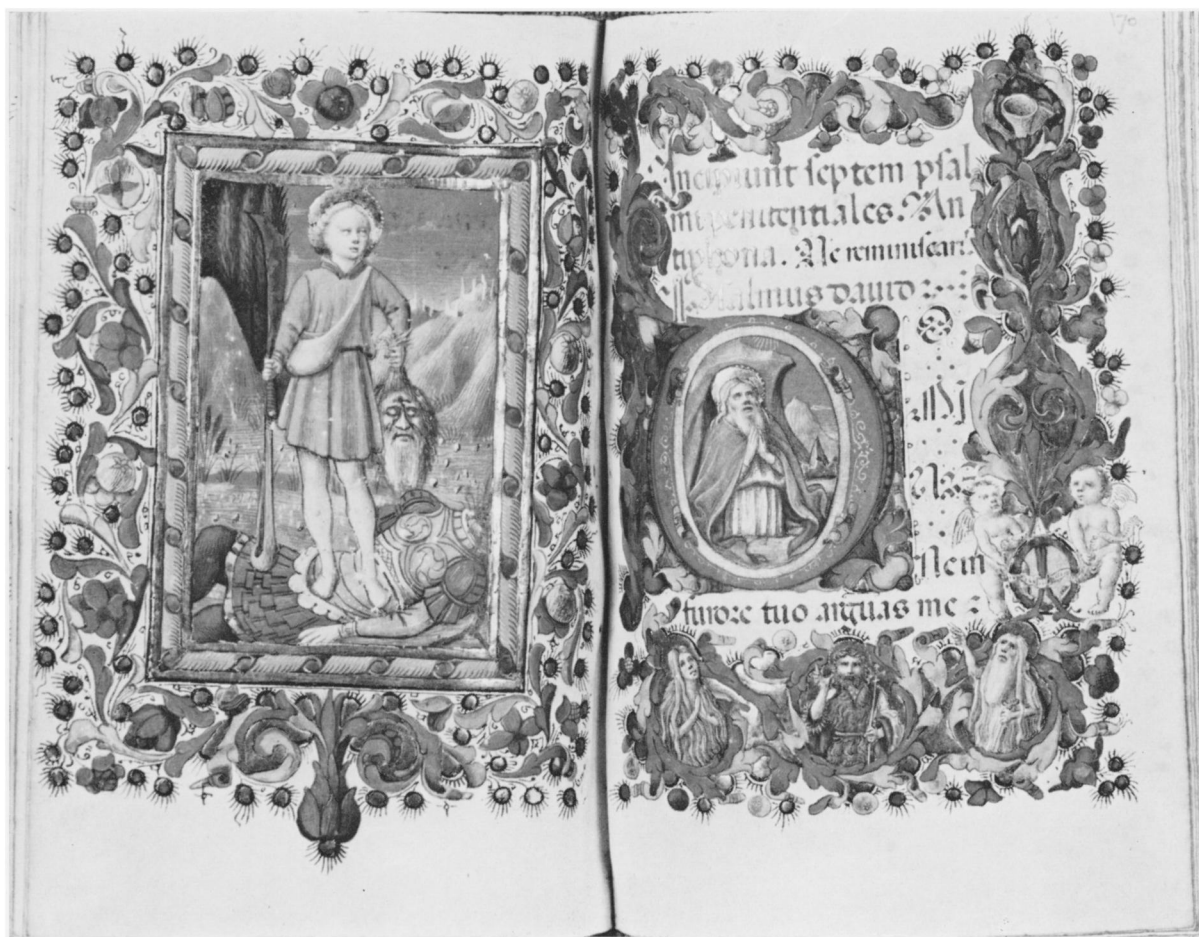 170
Incipiunt septem psal
mi penitentiales. An
tiphona. Ne reminiscaris.
Psalmus dauid
D
Ne in
furore tuo arguas me :